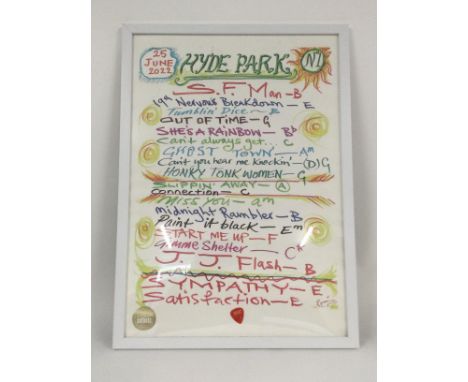 25
JUNE
2022
HYDE PARK
N1
S.F. Man - B
19th Nervous Breakdown - E
Tumblin' Dice - B
OUT OF TIME - G
SHE'S A RAINBOW - Bb
Can't always get... C
GHOST TOWN - Am
Can't you hear me knockin' - (D) G
HONKY TONK WOMEN - G
SLIPPIN' AWAY - A
Connection - C
Miss you - am
midnight Rambler - B
Paint it black - Em
START ME UP - F
Gimme Shelter - C#
J. J. Flash - B
SYMPATHY - E
Satisfaction - E